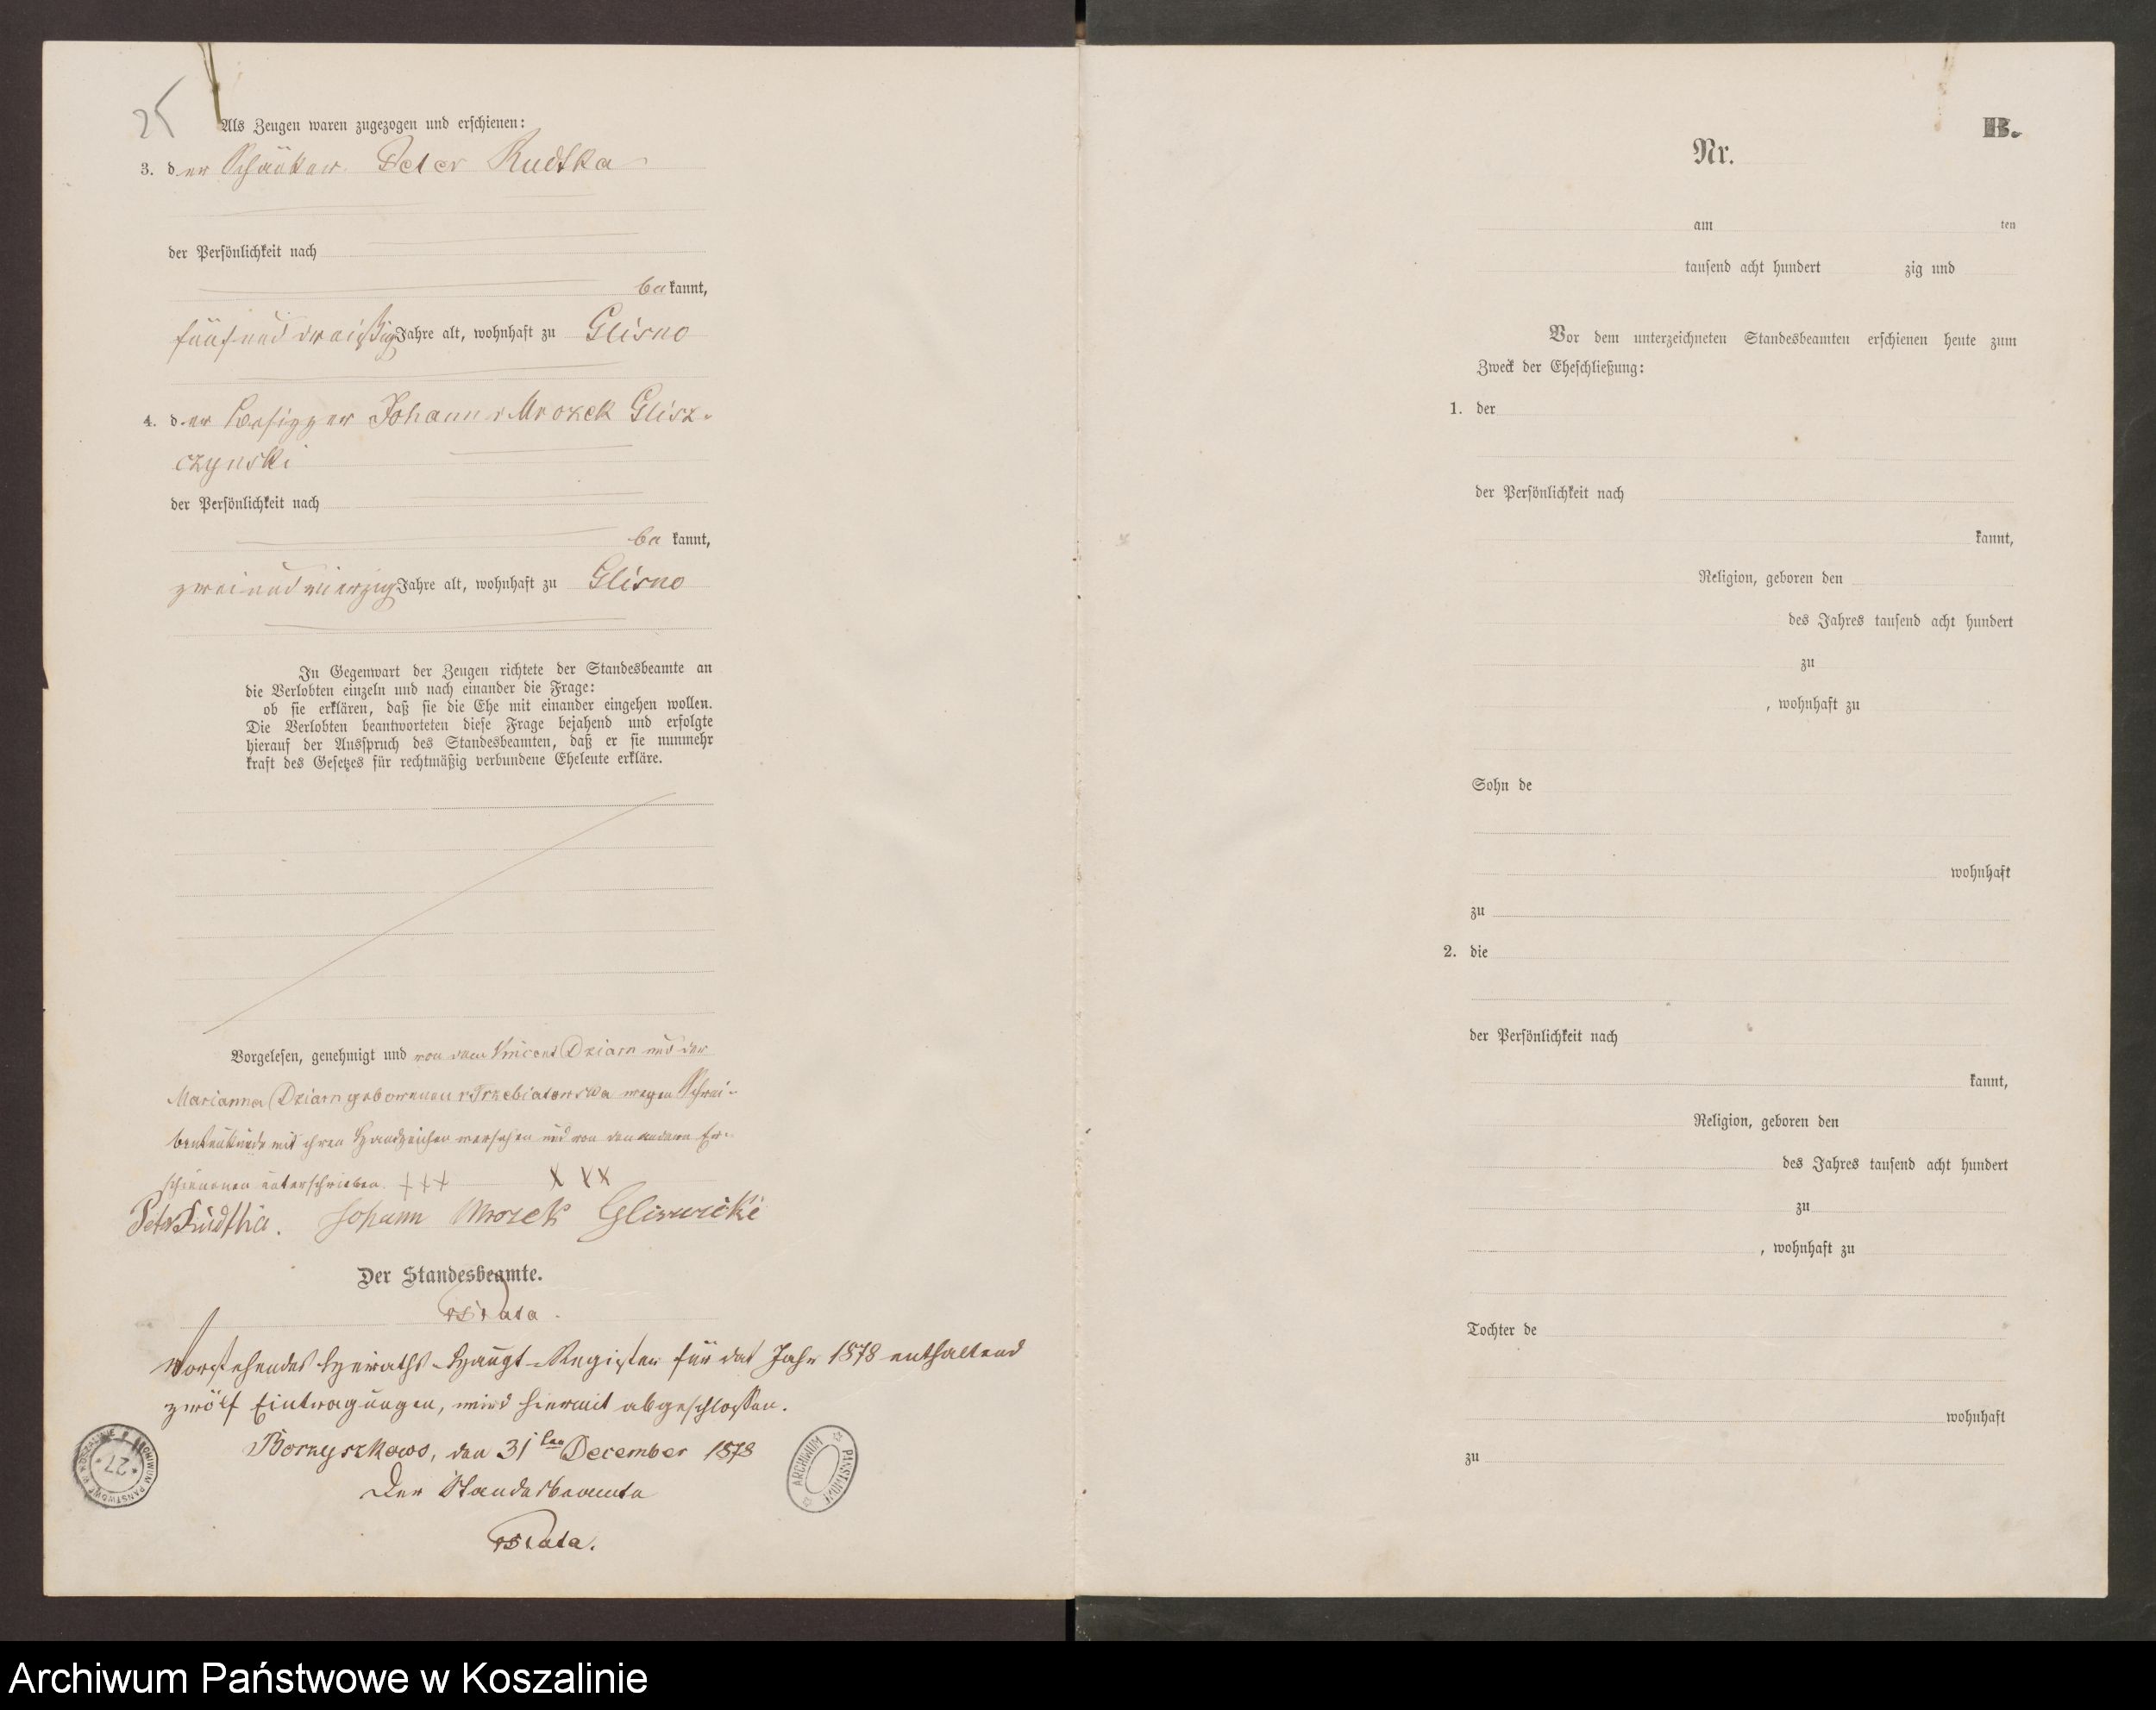 25
Als Zeugen waren zugezogen und erschienen:
3. der Schänker Peter Rudtka
der Persönlichkeit nach
bekannt,
fünfunddreißig Jahre alt, wohnhaft zu Glisno
4. der Besitzer Johann v Mrozek Glisz-
czynski
der Persönlichkeit nach
bekannt,
zweiundvierzig Jahre alt, wohnhaft zu Glisno
In Gegenwart der Zeugen richtete der Standesbeamte an
die Verlobten einzeln und nach einander die Frage:
ob sie erklären, daß sie die Ehe mit einander eingehen wollen.
Die Verlobten beantworteten diese Frage bejahend und erfolgte
hierauf der Ausspruch des Standesbeamten, daß er sie nunmehr
kraft des Gesetzes für rechtmäßig verbundene Eheleute erkläre.
Vorgelesen, genehmigt und von dem Vincent Dziarn und der
Marianna Dziarn geborenen v Trzebiatowska wegen Schrei-
bensunkunde mit ihren Handzeichen versehen und von den anderen Er-
schienenen unterschrieben. +++ XXX
Peter Rudtka. Johann Mrozek Gliszwicki
Der Standesbeamte.
Vorstehendes Heiraths-Haupt-Register für das Jahr 1878 enthaltend
zwölf Eintragungen, wird hiermit abgeschlossen.
Borzyszkowo, den 31ten December 1878
Der Standesbeamte
ARCHIWUM PAŃSTWOWE W KOSZALINIE
27
ARCHIWUM PAŃSTWOWE
B.
Nr.
am ten
tausend acht hundert zig und
Vor dem unterzeichneten Standesbeamten erschienen heute zum
Zweck der Eheschließung:
1. der
der Persönlichkeit nach
kannt,
Religion, geboren den
des Jahres tausend acht hundert
zu
, wohnhaft zu
Sohn de
wohnhaft
zu
2. die
der Persönlichkeit nach
kannt,
Religion, geboren den
des Jahres tausend acht hundert
zu
, wohnhaft zu
Tochter de
wohnhaft
zu
Archiwum Państwowe w Koszalinie